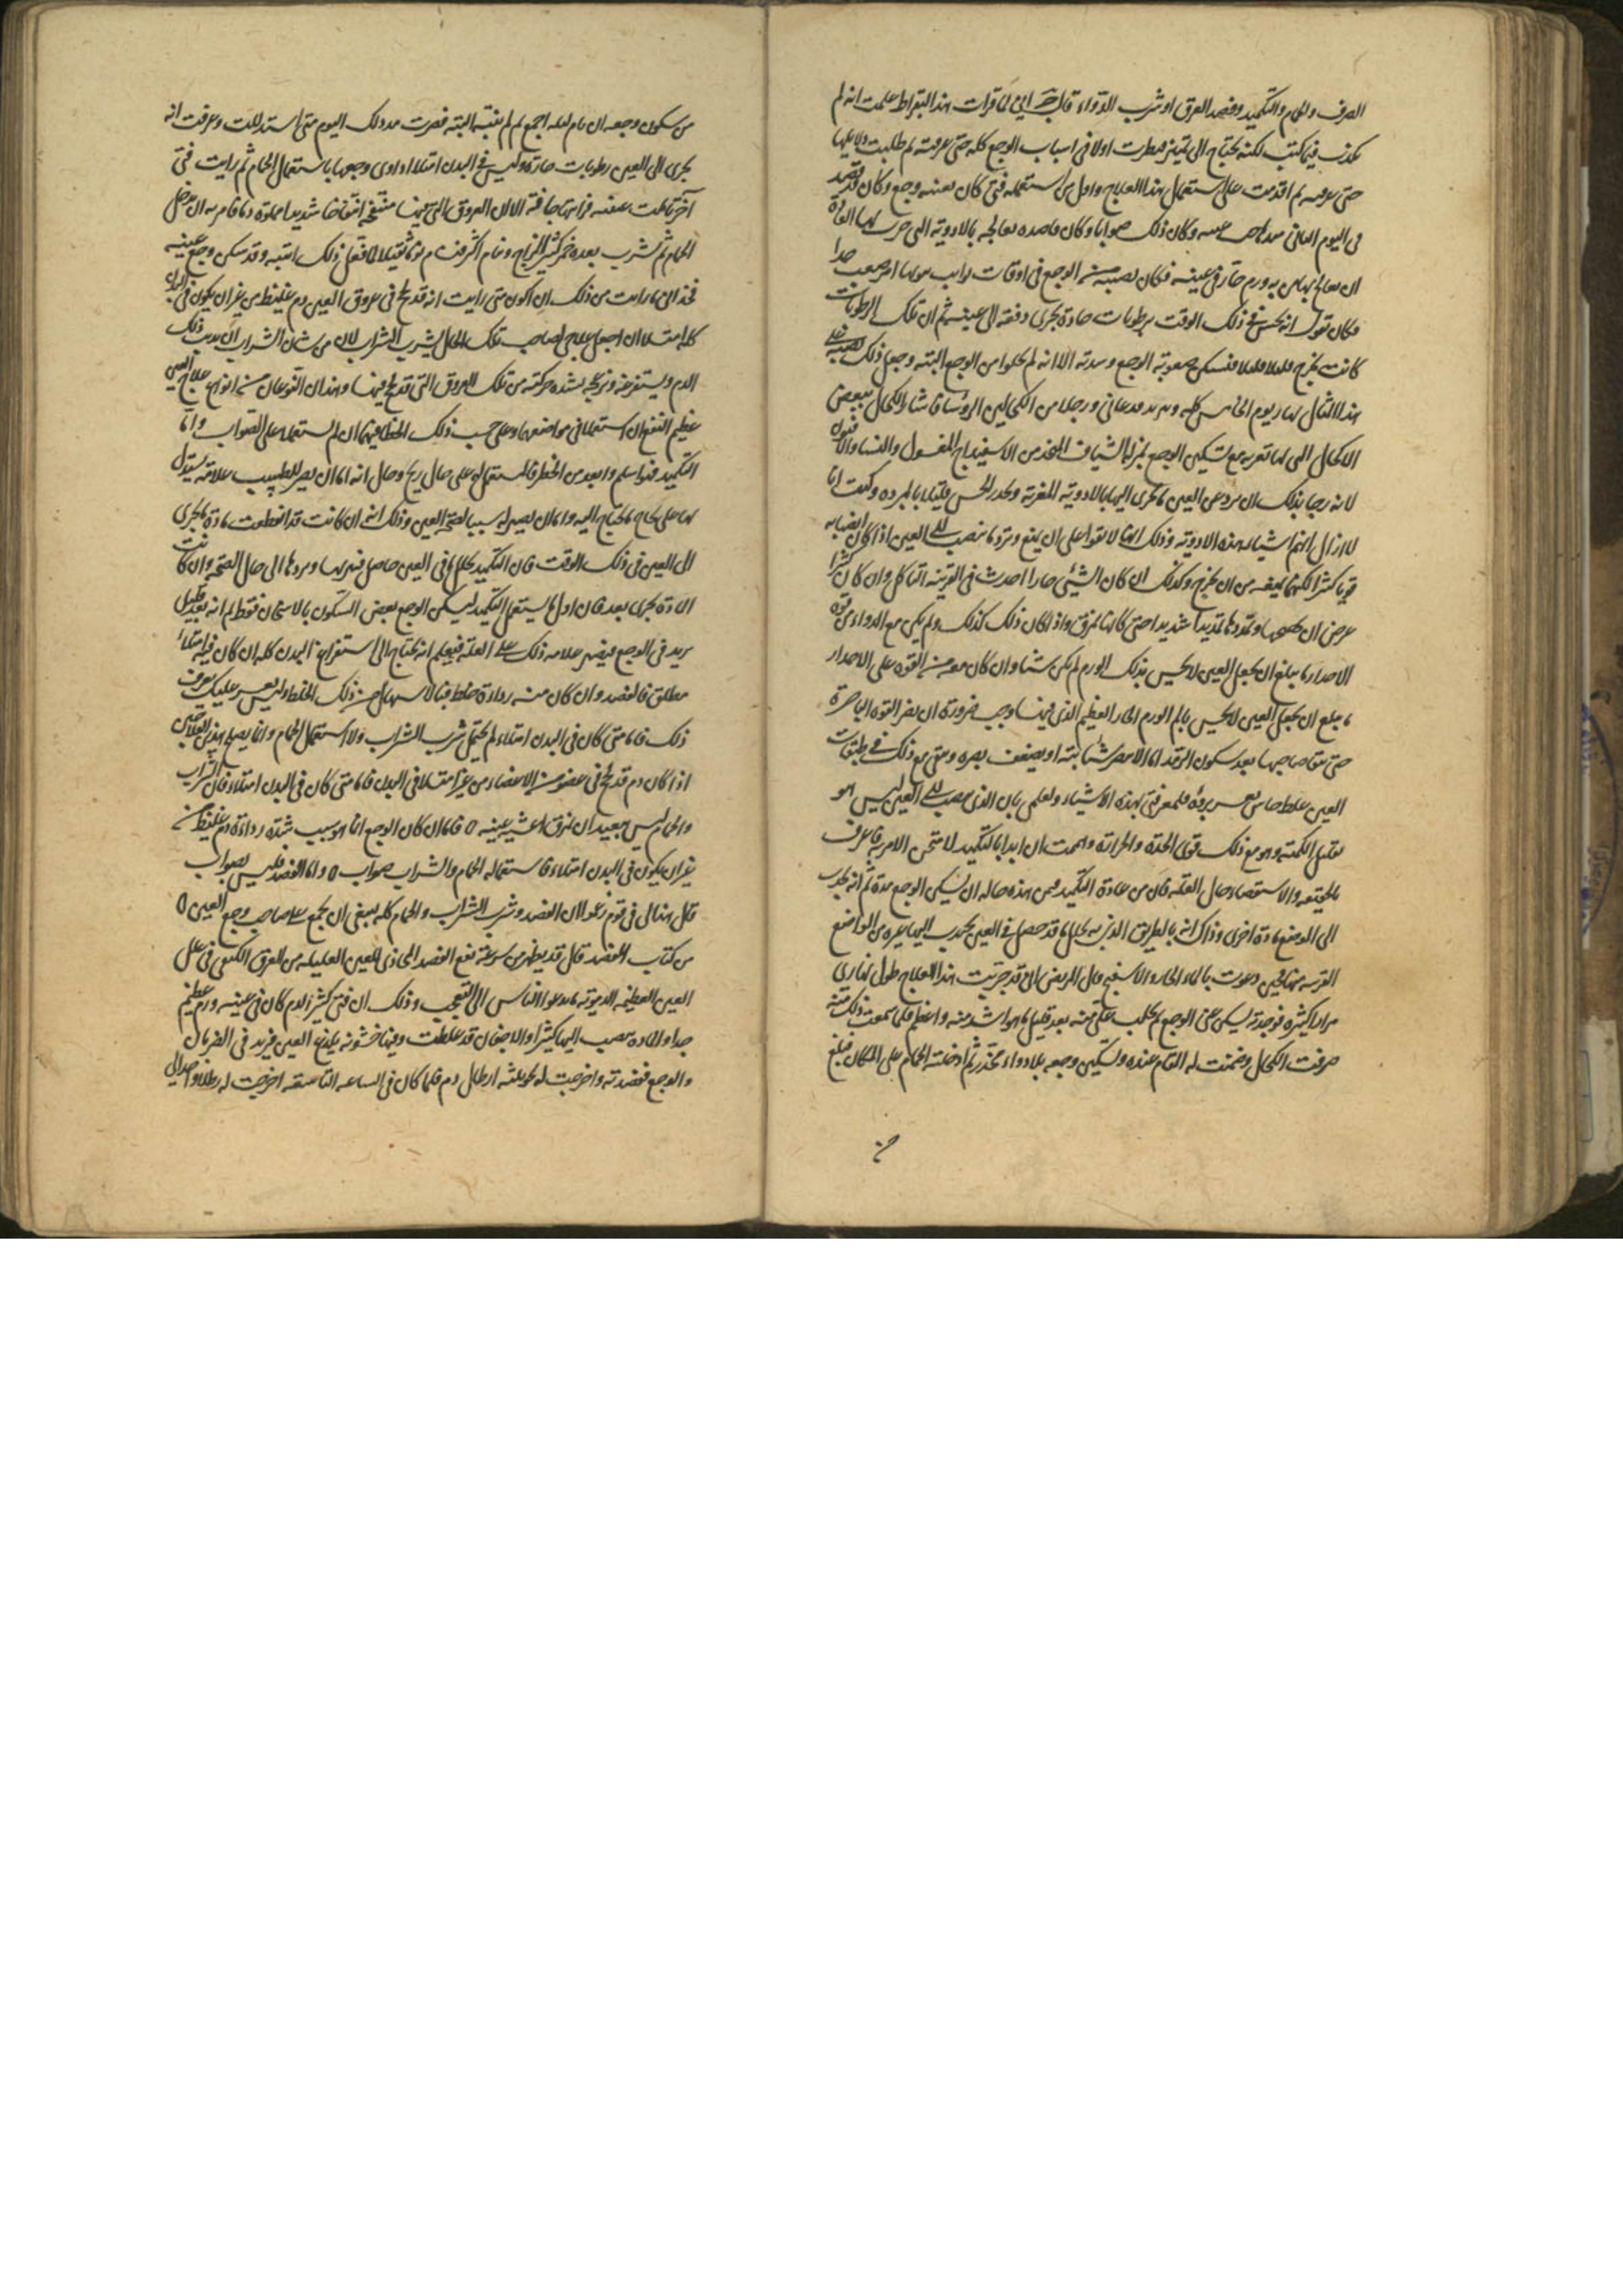 الصرف والحمام والتكميد وفصد العرق او شرب الدواء قال ج انى لما قرات هذا لبقراط علمت انه لم
يكذب فيما كتب لكنه يحتاج الى تمييز فنظرت اولا فى اسباب الوجع كله حتى عرفته ثم طلبت
حتى ثم اقدمت على استعمال هذا العلاج واول من استعمله فتى كان بعينه وجع وكان قد فصد
فى اليوم الثانى وكان ذلك صوابا وكان قاصده يعالجه بالادوية التى جرت بها العادة
ان يعالج بها من به ورم حار فى عينه فكان يصيبه من الوجع فى اوقات نوايب امر صعب جدا
فكان يقول انه يحس فى ذلك الوقت برطوبات حادة تجرى دفعة الى عينه ثم ان تلك الرطوبات
كانت تخرج قليلا قليلا فتسكن صعوبة الوجع وشدته الا انه لم يخلوا من الوجع البتة وجعل ذلك يصيبه على
هذا المثال نهار يوم الخامس كله ودعانى ورجلا من الكحالين الروسا فاشار الكحال ببعض
الاكحال التى لها تغرية مع تسكين الوجع بمنزلة الشياف المتخذ من الاسفيداج المغسول والنشا والافيون
لانه رجا بذلك ان يردع عن العين ما يجرى اليها بالادوية المغرية ويخدر الحس قليلا بالمبردة وكنت انا
لا ازال اتهم اشباه هذه الادوية وذلك انها لا تقوا على ان يمنع وترد ما ينصب الى العين اذا كان انصبابه
قويا كثيرا لكنها يمنعه من ان يخرج وكذلك ان كان الشئ حارا احدث فى القرنية تاكل وان كان كثيرا
عرض ان ويمددها تمديدا شديدا حتى كانها تمزق واذا كان ذلك كذلك ولم يكن مع الدواء من قوة
الاحدار ما يبلغ ان يجعل العين لا يحس بذلك الورم لم يكن شيئا وان كان معه من القوة على الاحدار
ما يبلغ ان يجعل العين لا يحس بالم الورم الحار العظيم الذى فيها وجب ضرورة ان يضر القوة الباصرة
حتى يبقا صاحبها بعد سكون الرمد اما لا يبصر شيئا بتة او يضعف بصره ويبقى مع ذلك فى طبقات
العين غلظ جاس يعسر برؤه فلمعرفتى بهذه الاشياء ولعلمى بان الذى ينصب الى العين ليس هو
بقليل الكمية وهو مع ذلك قوى الحدة والحرارة وهممت ان ابدا بالتكميد لامتحن الامر به فاعرف
بالحقيقة والاستقصاء حال العلة فان من عادة التكميد فى من هذه حاله ان يسكن الوجع مدة ثم انه يجذب
الى الموضع مادة اخرى وذاك انه بالطريق الذى به يحلل ما قد حصل فى العين يجذب اليها غيره من المواضع
القريبة منها فحين دعوت بالماء الحار والاسفنج قال المريض انى قد جربت هذا العلاج طول نهارى
مرارا كثيرة فوجدته يسكن عنى الوجع ثم يجلب على منه بعد قليل ما هو اشد منه واعظم فلما سمعت ذلك منه
صرفت الكحال وضمنت له القيام عنده وتسكين وجعه بلا دواء مخدر ثم ادخلته الحمام على المكان فبلغ
من سكون وجعه ان نام ليله اجمع ثم لم ينتبه البتة فصرت منذ ذلك اليوم متى استدللت وعرفت انه
يجرى الى العين رطوبات حارة وليس فى البدن امتلا اداوى وجعها باستعمال الحمام ثم رايت فتى
آخر تاملت عينه فرايتها جافة الا ان العروق التى فيها منتفخة انتفاخا شديدا مملوة دما فامرته ان يدخل
الحمام ثم شرب بعده خمرا كثير المزاج ونام اكثر فنام نوما ثقيلا لما فعل ذلك انتبه وقد سكن وجع عينه
فحدانى ما رايت من ذلك ان اكون متى رايت انه قد لحج فى عروق العين دم غليظ من غير ان يكون فى البدن
كله امتلا ان اجعل علاجى لصاحب تلك الحال بشرب الشراب لان من شان الشراب ان يذيب ذلك
الدم ويستفرغه ويزعجه بشدة حركته من تلك العروق التى قد لحج فيها وهذان النوعان من انواع علاج العين
عظيم النفع ان استعملا فى مواضعهما وعلى حسب ذلك الخطا فيهما ان لم تستعمله على الصواب واما
التكميد فهو اسلم وابعد من الخطر فالمستعمل له على حال ربح وحال انه اما ان يصير للطبيب علامة يستدل
بها على علاج ما يحتاج اليه واما ان يصير له سببا لصحة العين وذلك انه ان كانت قد انقطعت مادة ما يجرى
الى العين فى ذلك الوقت فان التكميد يحلل ما فى العين حاصل فيبريها ويردها الى حال الصحة وان كانت
المادة تجرى بعد فان اول ما يستعمل التكميد يسكن الوجع بعض السكون بالاسخان فقط ثم انه بعد قليل
يزيد فى الوجع فيصير علامة ذلك على العلة فيعلم انه يحتاج الى استفراغ البدن كله ان كان فيه امتلا
مطلق فالفصد وان كان منه رداءة خلط فبالاسهال من ذلك الخلط وليس يعسر عليك تعرف
ذلك فاما متى كان فى البدن امتلاء لم يحتمل شرب الشراب ولا استعمال الحمام وانما يصلح هذين العلاجين
اذا كان دم قد لحج فى عضو من الاعضاء من غير امتلا فى البدن فاما متى كان فى البدن امتلاء فان الشراب
والحمام ليس ببعيد ان يمزق اغشية عينيه ○ فاما ان كان الوجع انما هو بسبب شدة رداءة دم غليظ من
غير ان يكون فى البدن امتلاء فاستعماله الحمام والشراب صواب ○ واما الفصد فليس بصواب
قال هذا لى فى قوم زعموا ان الفصد وشرب الشراب والحمام كله ينبغى ان يجمع على صاحب وجع العين ○
من كتاب الفصد قال قد يظهر من سرعة نفع الفصد المحاذى للعين العليلة من العرق الكتفى فى علل
العين العظيمة الدموية ما يدعوا الناس الى التعجب وذلك ان فتى كثير الدم كان فى عينه ورم عظيم
جدا والمادة تنصب اليها كثيرا والاجفان قد غلظت وفيها خشونة يلذع العين فيزيد فى الضربان
والوجع ففصدته واخرجت له نحو ثلثة ارطال دم فلما كان فى الساعه التاسعة اخرجت له رطلا واحدا